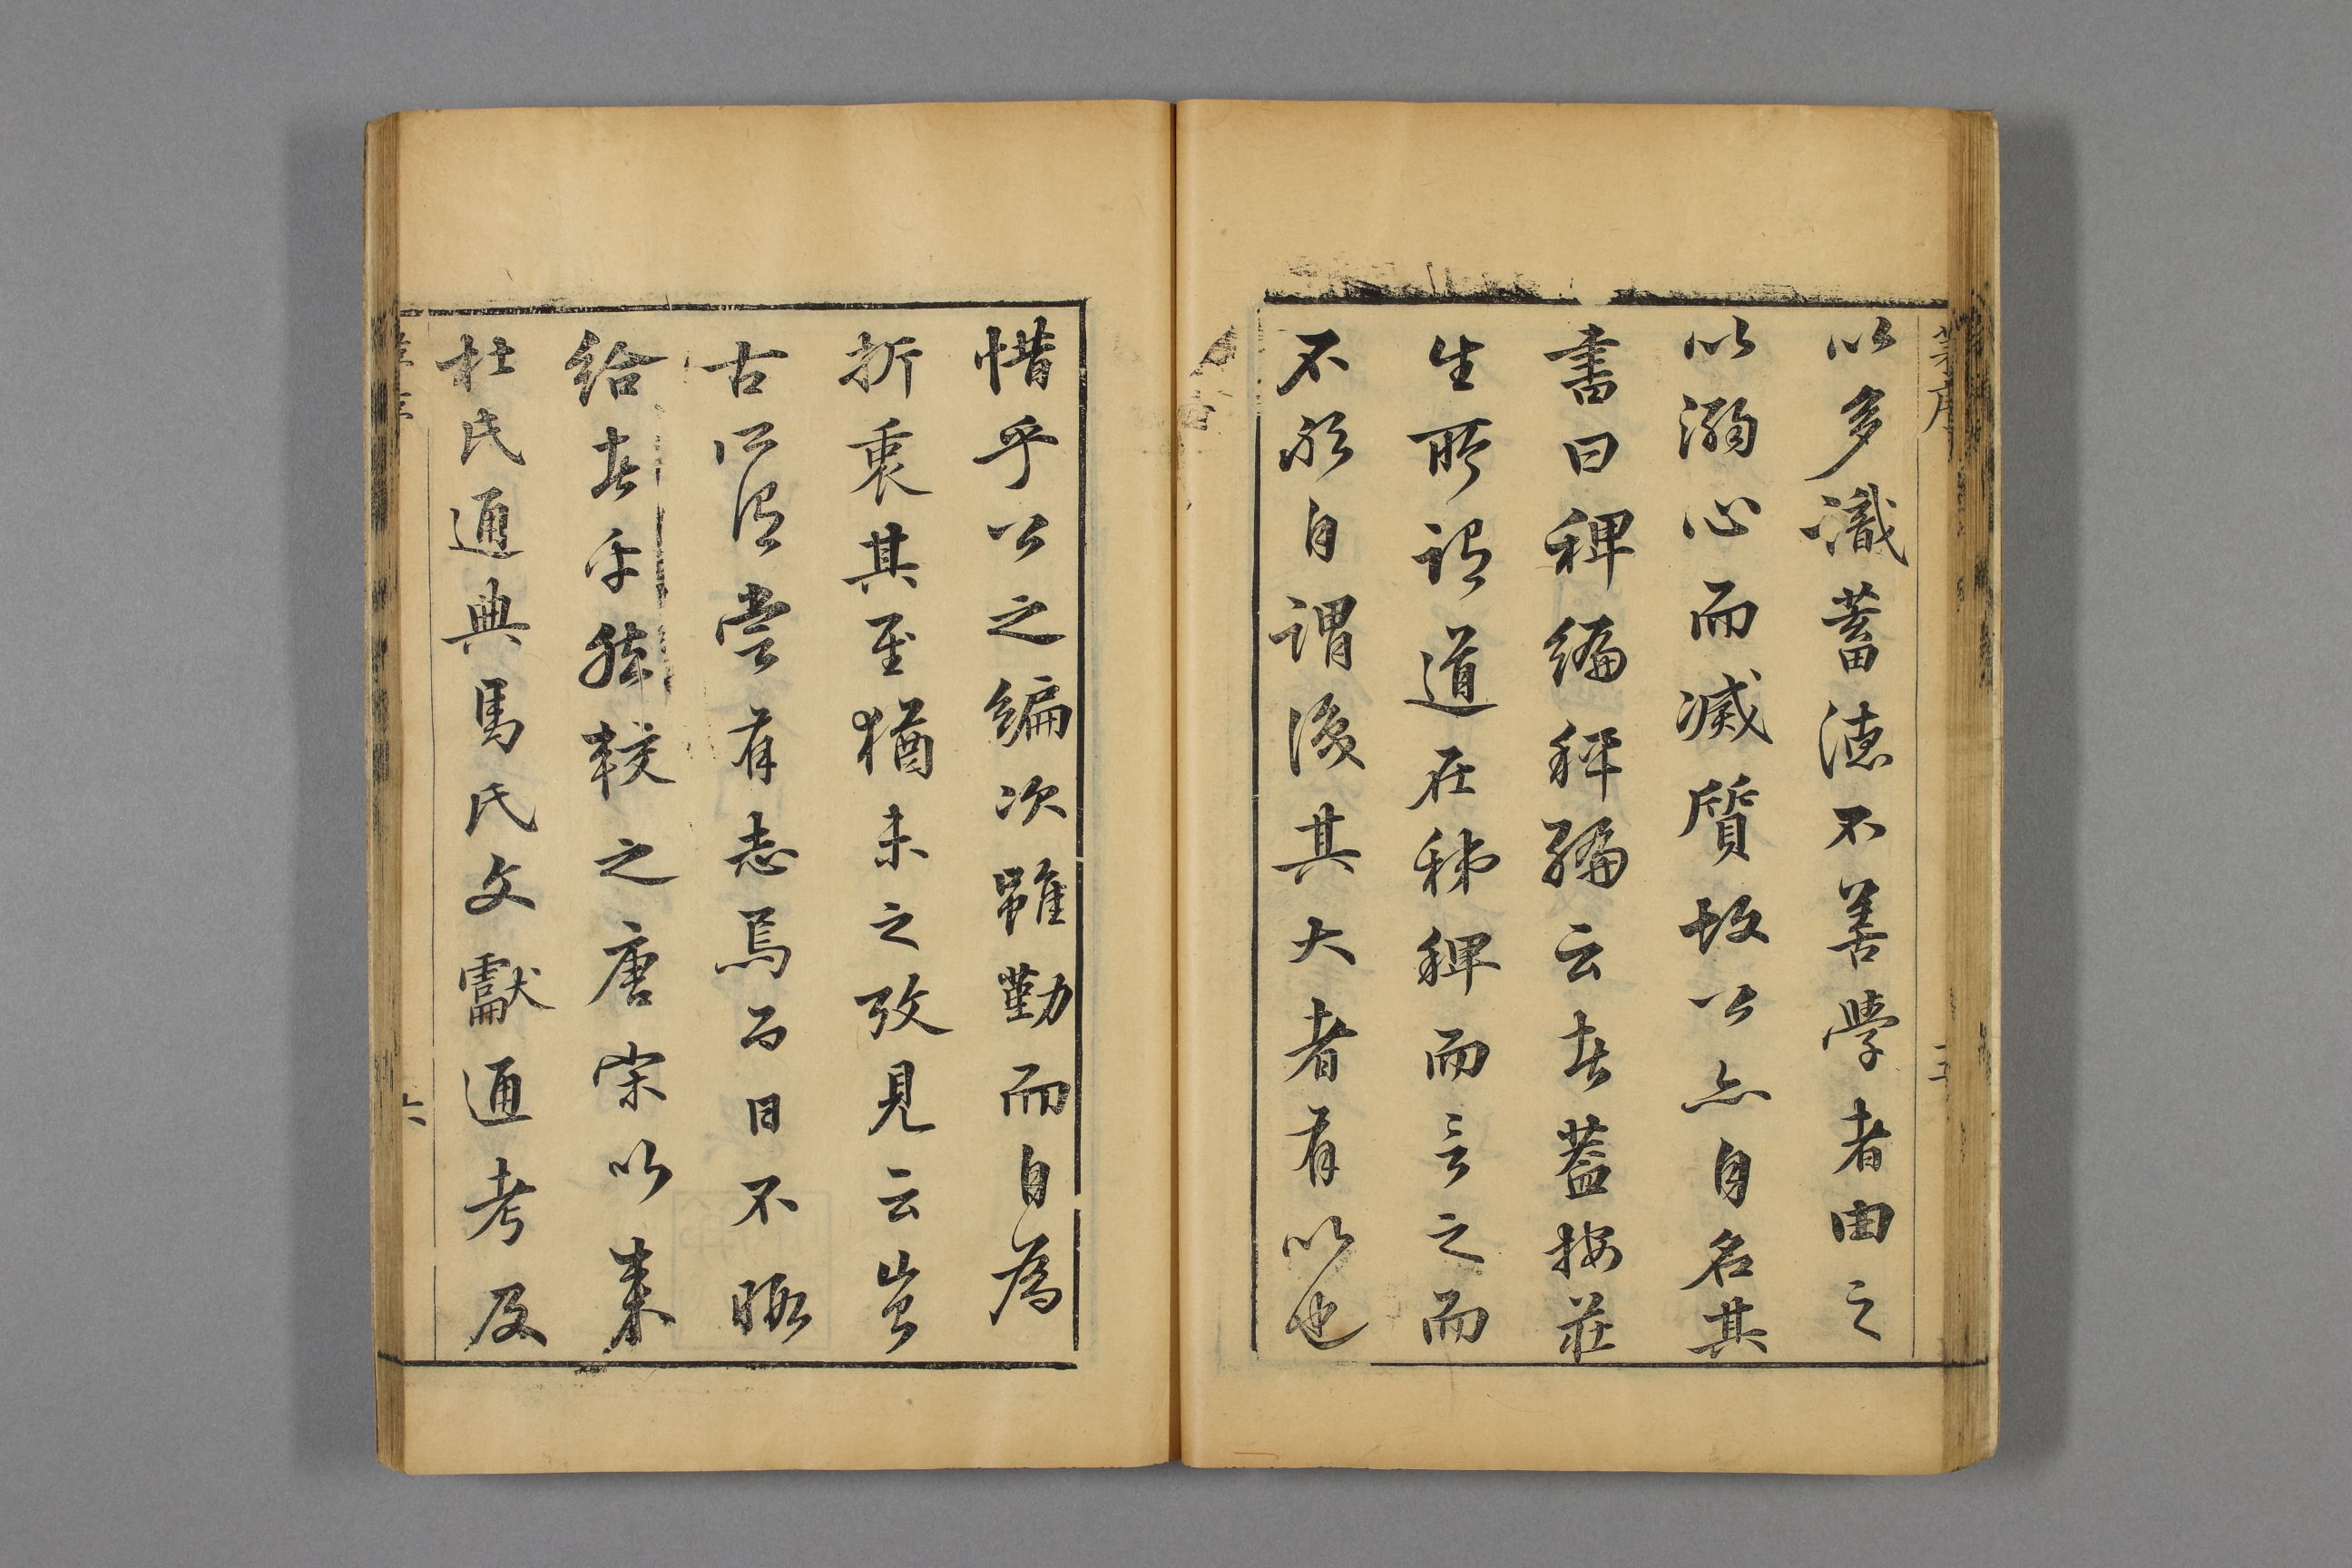 以多識蓄德不善學者由之
以溺心而滅質故公亦自名其
書曰稗編稗編云者蓋按莊
生所謂道在稊稗而言之而
不欲自謂後其大者有以也
五
惜乎公之編次雖勤而自為
折衷其至猶未之攷見云豈
古所謂嘗有志焉而日不暇
給者乎然較之唐宋以來
杜氏通典馬氏文獻通考及
六